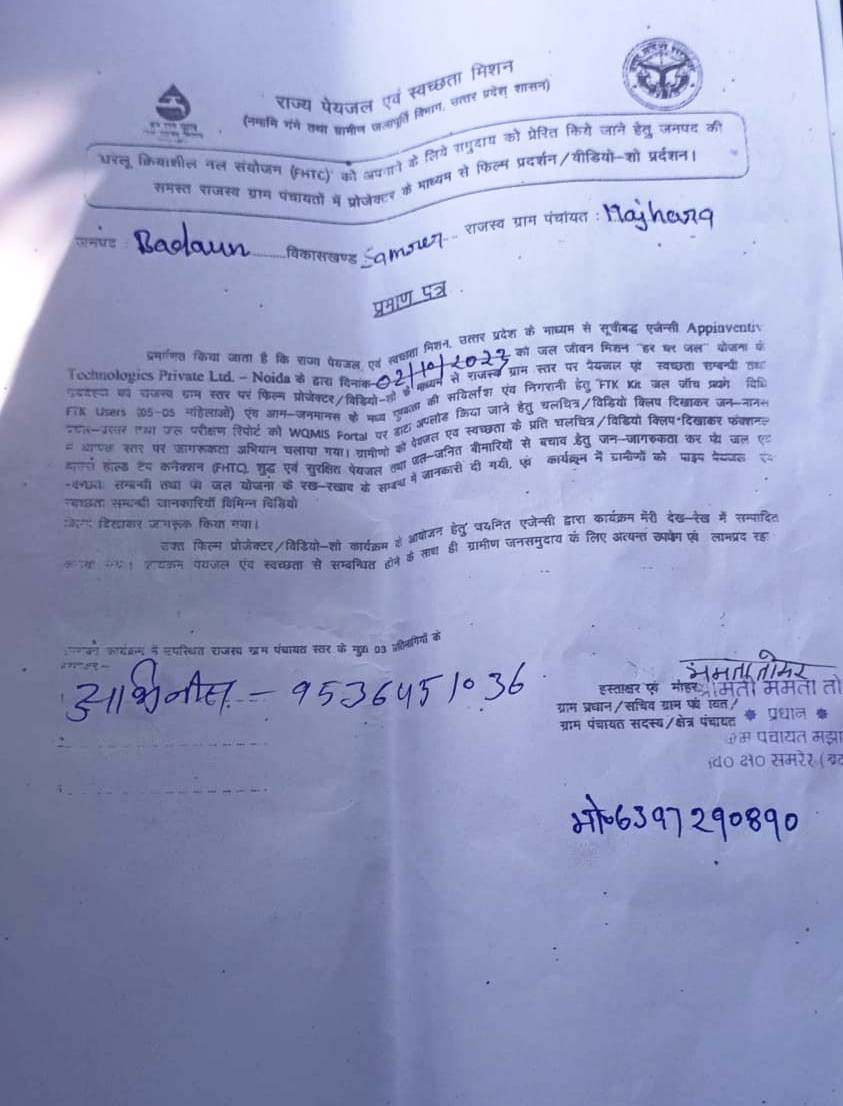 राज्य पेयजल एवं स्वच्छता मिशन
(नमामि गंगे तथा ग्रामीण जलापूर्ति विभाग, उत्तर प्रदेश शासन)
घरेलू क्रियाशील नल संयोजन (FHTC)' को अपनाने के लिये समुदाय को प्रेरित किये जाने हेतु जनपद की
समस्त राजस्व ग्राम पंचायतों में प्रोजेक्टर के माध्यम से फिल्म प्रदर्शन/वीडियो-शो प्रर्दशन।
जनपद : Badaun विकासखण्ड Samrer राजस्व ग्राम पंचायत : Majhara
प्रमाण पत्र
प्रमाणित किया जाता है कि राज्य पेयजल एवं स्वच्छता मिशन, उत्तर प्रदेश के माध्यम से सूचीबद्ध एजेन्सी Appinventiv
Technologies Private Ltd. - Noida के द्वारा दिनांक 02/10/2023 को जल जीवन मिशन "हर घर जल" योजना के
राजस्व ग्राम स्तर पर फिल्म प्रोजेक्टर/विडियो-शो के माध्यम से राजस्व ग्राम स्तर पर पेयजल एवं स्वच्छता सम्बन्धी तथा
FTK Users (05-05 महिलाओं) एंव आम-जनमानस के मध्य की सर्विलांश एंव निगरानी हेतु FTK Kit जल जाँच विधि
तथा जल परीक्षण रिपोर्ट को WQMIS Portal पर डाटा अपलोड किया जाने हेतु चलचित्र/विडियो क्लिप दिखाकर जन-मानस
में व्यापक स्तर पर जागरूकता अभियान चलाया गया। ग्रामीणो को पेयजल एवं स्वच्छता के प्रति चलचित्र/विडियो क्लिप दिखाकर फंक्शनल
हाउस होल्ड टेप कनेक्शन (FHTC), शुद्ध एवं सुरक्षित पेयजल तथा जल-जनित बीमारियों से बचाव हेतु जन-जागरूकता कर पेय जल एवं
स्वच्छता सम्बन्धी तथा पेय जल योजना के रख-रखाव के सम्बंध में जानकारी दी गयी, एवं कार्यक्रम में ग्रामीणों को पाइप पेयजल एंव
स्वच्छता सम्बन्धी जानकारियाँ विभिन्न विडियो
दिखाकर जागरूक किया गया।
उक्त फिल्म प्रोजेक्टर/विडियो-शो कार्यक्रम के आयोजन हेतु चयनित एजेन्सी द्वारा कार्यक्रम मेरी देख-रेख में सम्पादित
कार्यक्रम पेयजल एंव स्वच्छता से सम्बन्धित होने के साथ ही ग्रामीण जनसमुदाय के लिए अत्यन्त उपयोग एवं लाभप्रद रहा
कार्यक्रम में उपस्थित राजस्व ग्राम पंचायत स्तर के मुख्य 03 प्रतिभागियों के
- 9536451036
2
3
ममता तोमर
हस्ताक्षर एवं मोहर श्रीमती ममता तो
ग्राम प्रधान/सचिव ग्राम पंचायत/
ग्राम पंचायत सदस्य/क्षेत्र पंचायत प्रधान
पंचायत मझा
वि० क्षे० समरेर (बद
मो०6397290890